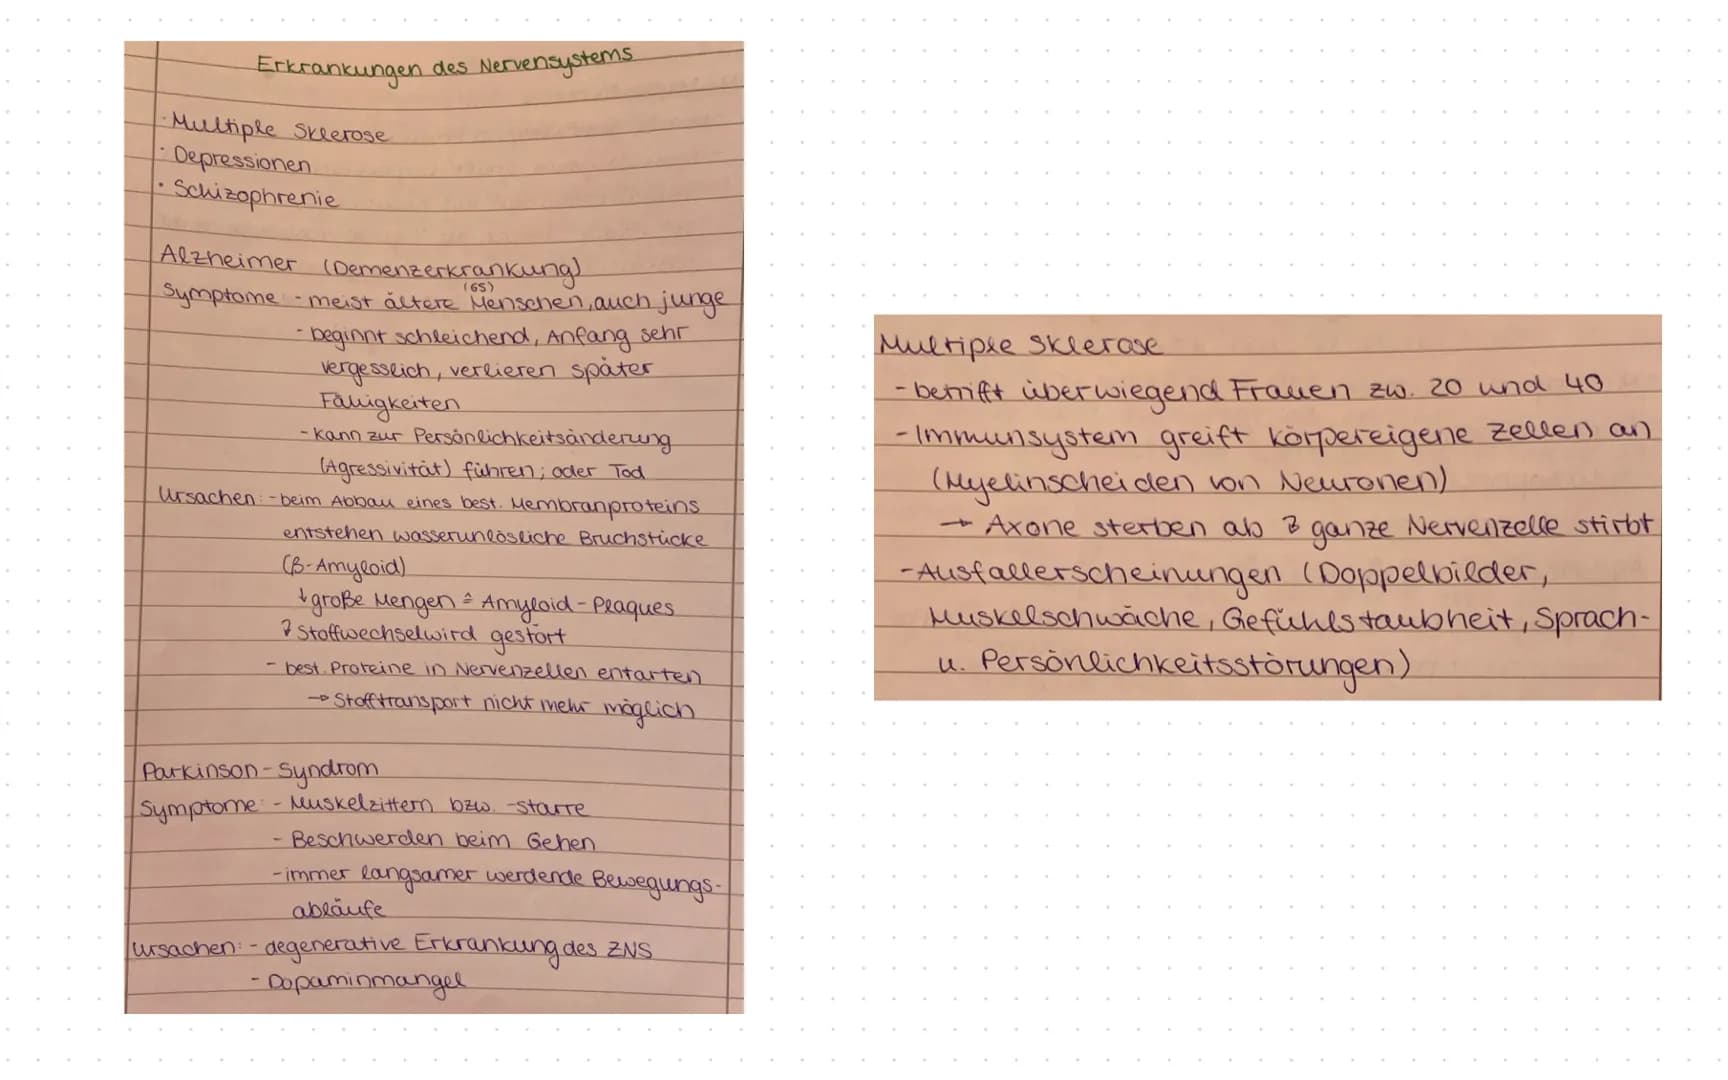 Erkrankungen des Nervensystems
· Multiple Sklerose
· Depressionen
· Schizophrenie
Alzheimer (Demenzerkrankung)
(65)
Symptome - meist ältere Menschen, auch junge
- beginnt schleichend, Anfang sehr
vergesslich, verlieren später
Fähigkeiten
- kann zur Persönlichkeitsänderung
(Agressivität) führen; oder Tod
Ursachen: - beim Abbau eines best. Membranproteins
entstehen wasserunlösliche Bruchstücke
(β-Amyloid)
↓ große Mengen ≙ Amyloid-Plaques
Stoffwechsel wird gestört
- best. Proteine in Nervenzellen entarten
→ Stofftransport nicht mehr möglich
Parkinson-Syndrom
Symptome: - Muskelzittern bzw. -starre
- Beschwerden beim Gehen
- immer langsamer werdende Bewegungs-
abläufe
Ursachen: - degenerative Erkrankung des ZNS
- Dopaminmangel
Multiple Sklerose
- betrifft überwiegend Frauen zw. 20 und 40
- Immunsystem greift körpereigene Zellen an
(Myelinscheiden von Neuronen)
→ Axone sterben ab ganze Nervenzelle stirbt
- Ausfallerscheinungen (Doppelbilder,
Muskelschwäche, Gefühlstaubheit, Sprach-
u. Persönlichkeitsstörungen)